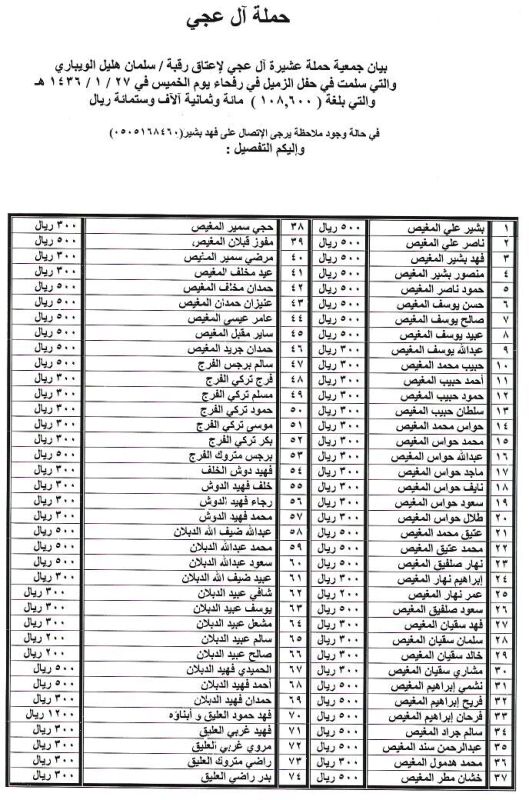 حملة آل عجي
بيان جمعية حملة عشيرة آل عجي لإعتاق رقبة / سلمان هليل الويباري
والتي سلمت في حفل الزميل في رفحاء يوم الخميس في ٢٧ / ١ / ١٤٣٦ هـ
والتي بلغة ( ١٠٨,٦٠٠ ) مائة وثمانية آلآف وستمائة ريال
في حالة وجود ملاحظة يرجى الإتصال على فهد بشير(٠٥٠٥١٦٨٤٦٠)
وإليكم التفصيل :
١ بشير علي المغيص ٥٠٠ ريال ٣٨ حجي سمير المغيص ٣٠٠ ريال
٢ ناصر علي المغيص ٥٠٠ ريال ٣٩ مفوز قبلان المغيص ٥٠٠ ريال
٣ فهد بشير المغيص ٥٠٠ ريال ٤٠ مرضي سمير المغيص ٣٠٠ ريال
٤ منصور بشير المغيص ٥٠٠ ريال ٤١ عيد مخلف المغيص ٥٠٠ ريال
٥ حمود ناصر المغيص ٥٠٠ ريال ٤٢ حمدان مخلف المغيص ٥٠٠ ريال
٦ حسن يوسف المغيص ٥٠٠ ريال ٤٣ عنيزان حمدان المغيص ٥٠٠ ريال
٧ صالح يوسف المغيص ٥٠٠ ريال ٤٤ عامر عيسى المغيص ٥٠٠ ريال
٨ عبيد يوسف المغيص ٥٠٠ ريال ٤٥ ساير مقبل المغيص ٥٠٠ ريال
٩ عبدالله يوسف المغيص ٣٠٠ ريال ٤٦ حمدان جريد المغيص ٣٠٠ ريال
١٠ حبيب محمد المغيص ٣٠٠ ريال ٤٧ سالم برجس الفرج ٥٠٠ ريال
١١ أحمد حبيب المغيص ٣٠٠ ريال ٤٨ فرج تركي الفرج ٣٠٠ ريال
١٢ حمود حبيب المغيص ٣٠٠ ريال ٤٩ مسلم تركي الفرج ٣٠٠ ريال
١٣ سلطان حبيب المغيص ٣٠٠ ريال ٥٠ حمود تركي الفرج ٣٠٠ ريال
١٤ حواس محمد المغيص ٣٠٠ ريال ٥١ موسى تركي الفرج ٣٠٠ ريال
١٥ محمد حواس المغيص ٣٠٠ ريال ٥٢ بكر تركي الفرج ٣٠٠ ريال
١٦ عبدالله حواس المغيص ٣٠٠ ريال ٥٣ برجس متروك الفرج ٣٠٠ ريال
١٧ ماجد حواس المغيص ٣٠٠ ريال ٥٤ فهيد دوش الخلف ٣٠٠ ريال
١٨ نايف حواس المغيص ٣٠٠ ريال ٥٥ خلف فهيد الدوش ٣٠٠ ريال
١٩ سعود حواس المغيص ٣٠٠ ريال ٥٦ رجاء فهيد الدوش ٣٠٠ ريال
٢٠ طلال حواس المغيص ٣٠٠ ريال ٥٧ محمد فهيد الدوش ٣٠٠ ريال
٢١ عتيق محمد المغيص ٥٠٠ ريال ٥٨ عبدالله ضيف الله الدبلان ٥٠٠ ريال
٢٢ محمد عتيق المغيص ٥٠٠ ريال ٥٩ محمد عبدالله الدبلان ٥٠٠ ريال
٢٣ نهار صلفيق المغيص ٥٠٠ ريال ٦٠ سعود عبدالله الدبلان ٥٠٠ ريال
٢٤ إبراهيم نهار المغيص ٣٠٠ ريال ٦١ عبيد ضيف الله الدبلان ٣٠٠ ريال
٢٥ عمر نهار المغيص ٣٠٠ ريال ٦٢ شافي عبيد الدبلان ٣٠٠ ريال
٢٦ سعود صلفيق المغيص ٥٠٠ ريال ٦٣ يوسف عبيد الدبلان ٣٠٠ ريال
٢٧ فهد سقيان المغيص ٣٠٠ ريال ٦٤ مشعل عبيد الدبلان ٣٠٠ ريال
٢٨ سلمان سقيان المغيص ٥٠٠ ريال ٦٥ سالم عبيد الدبلان ٢٠٠ ريال
٢٩ خالد سقيان المغيص ٣٠٠ ريال ٦٦ صالح عبيد الدبلان ٢٠٠ ريال
٣٠ مشاري سقيان المغيص ٣٠٠ ريال ٦٧ الحميدي فهيد الدبلان ٥٠٠ ريال
٣١ نشمي إبراهيم المغيص ٥٠٠ ريال ٦٨ أحمد فهيد الدبلان ٥٠٠ ريال
٣٢ فريح إبراهيم المغيص ٣٠٠ ريال ٦٩ حمدان فهيد الدبلان ٣٠٠ ريال
٣٣ فرحان إبراهيم المغيص ٣٠٠ ريال ٧٠ فهد حمود العليق و أبناؤه ١٢٠٠ ريال
٣٤ سالم جراد المغيص ٥٠٠ ريال ٧١ فهيد غربي العليق ٥٠٠ ريال
٣٥ عبدالرحمن سند المغيص ٥٠٠ ريال ٧٢ مروي غربي العليق ٥٠٠ ريال
٣٦ محمد هدمول المغيص ٣٠٠ ريال ٧٣ راضي متروك العليق ٣٠٠ ريال
٣٧ خشان مطر المغيص ٥٠٠ ريال ٧٤ بدر راضي العليق ٣٠٠ ريال